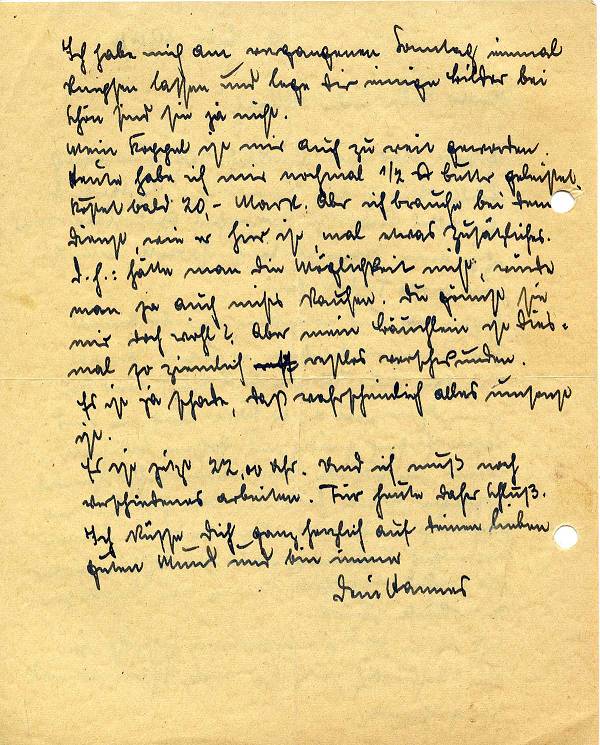 Ich habe mich am vergangenen Sonntag einmal
knipsen lassen und lege Dir einige Bilder bei
schön sind sie ja nicht.
Mein Koppel ist mir auch zu weit geworden.
Heute habe ich mir nochmal 1/2 ℔ Butter geleistet.
Kostet bald 20,- Mark. Aber ich brauche bei dem
Dienst, wie er hier ist, mal etwas Zusätzliches.
D.h.: hätte man die Möglichkeit nicht, würde
man ja auch nichts kaufen. Du gönnst sie
mir doch wohl? Aber mein Bäuchlein ist dies-
mal so ziemlich restlos verschwunden.
Es ist ja schade, daß wahrscheinlich alles umsonst
ist.
Es ist jetzt 22,00 Uhr. Und ich muß noch
verschiedenes arbeiten. Für heute daher Schluß.
Ich küsse Dich ganz herzlich auf Deinen lieben
guten Mund und bin immer
Dein Hannes